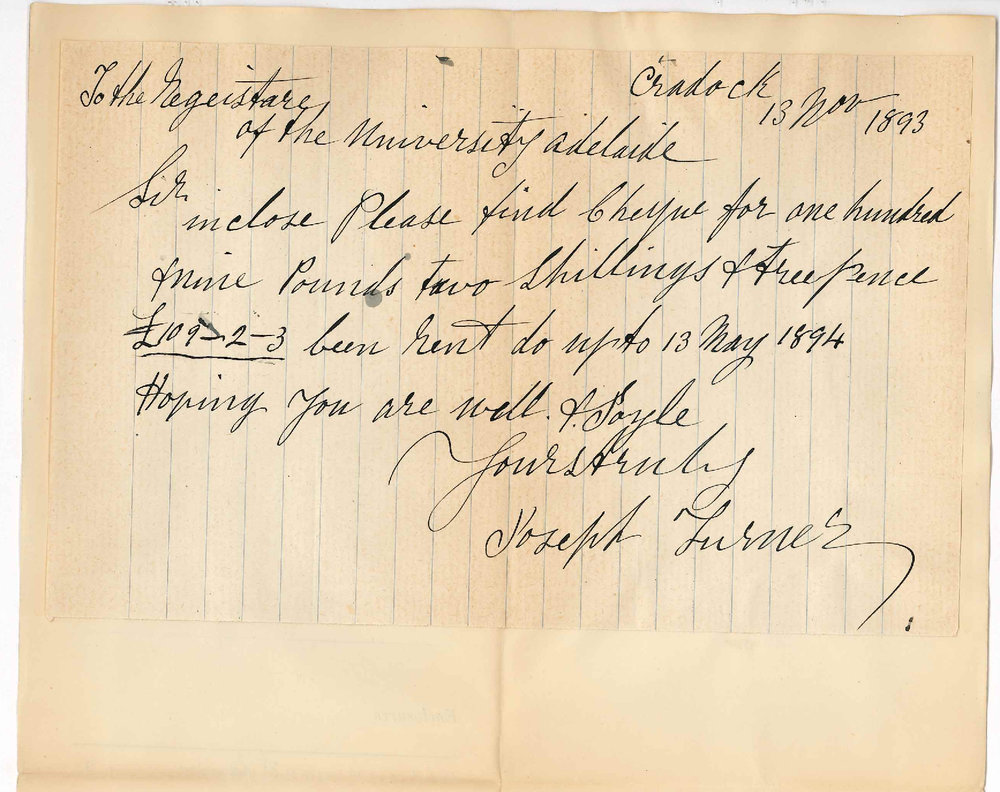 Cradock
13 Nov 1893
To the Regeistarer
of the University adelaide
Sir
inclose Please find Cheque for one hundred
& nine Pounds two Shillings & treepence
£109-2-3 been Rent do up to 13 May 1894
Hoping you are well.
Yours truly
Joseph Turner